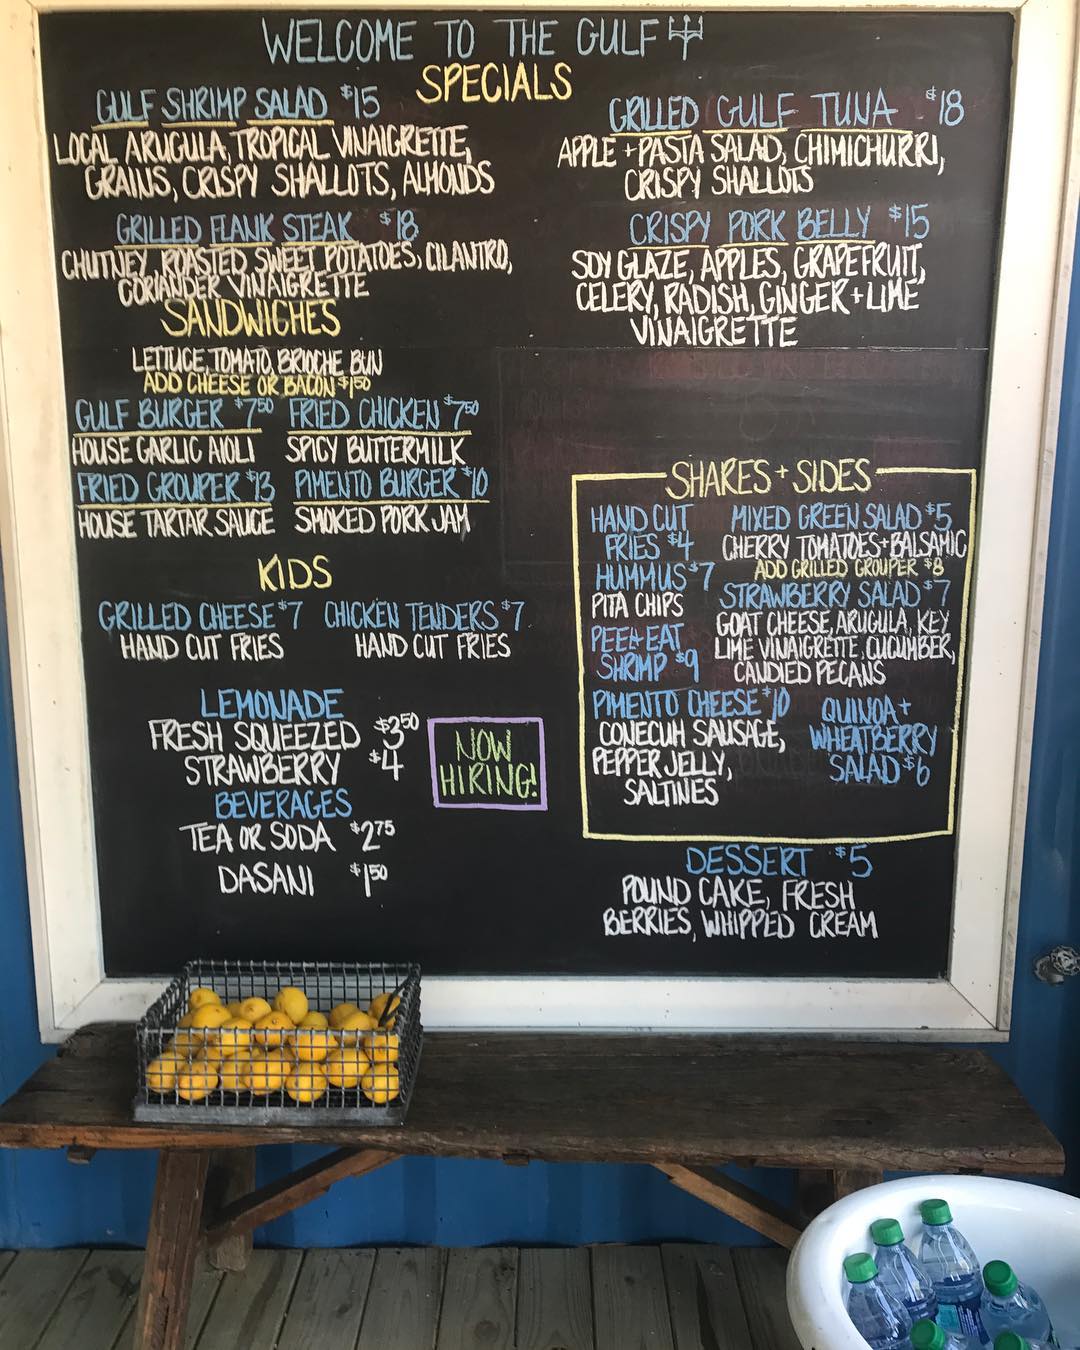 WELCOME TO THE GULF
SPECIALS
GULF SHRIMP SALAD $15
LOCAL ARUGULA, TROPICAL VINAIGRETTE,
GRAINS, CRISPY SHALLOTS, ALMONDS
GRILLED FLANK STEAK $18
CHUTNEY, ROASTED SWEET POTATOES, CILANTRO,
CORIANDER VINAIGRETTE
GRILLED GULF TUNA $18
APPLE + PASTA SALAD, CHIMICHURRI,
CRISPY SHALLOTS
CRISPY PORK BELLY $15
SOY GLAZE, APPLES, GRAPEFRUIT,
CELERY, RADISH, GINGER + LIME
VINAIGRETTE
SANDWICHES
LETTUCE, TOMATO, BRIOCHE BUN
ADD CHEESE OR BACON $1.50
GULF BURGER $7.50
HOUSE GARLIC AIOLI
FRIED CHICKEN $7.50
SPICY BUTTERMILK
FRIED GROUPER $13
HOUSE TARTAR SAUCE
PIMENTO BURGER $10
SMOKED PORK JAM
KIDS
GRILLED CHEESE $7
HAND CUT FRIES
CHICKEN TENDERS $7
HAND CUT FRIES
LEMONADE
FRESH SQUEEZED $3.50
STRAWBERRY $4
BEVERAGES
TEA OR SODA $2.75
DASANI $1.50
NOW
HIRING!
SHARES + SIDES
HAND CUT
FRIES $4
HUMMUS $7
PITA CHIPS
PEEL+EAT
SHRIMP $9
PIMENTO CHEESE $10
CONECUH SAUSAGE,
PEPPER JELLY,
SALTINES
MIXED GREEN SALAD $5
CHERRY TOMATOES+BALSAMIC
ADD GRILLED GROUPER $8
STRAWBERRY SALAD $7
GOAT CHEESE, ARUGULA, KEY
LIME VINAIGRETTE, CUCUMBER,
CANDIED PECANS
QUINOA +
WHEATBERRY
SALAD $6
DESSERT $5
POUND CAKE, FRESH
BERRIES, WHIPPED CREAM